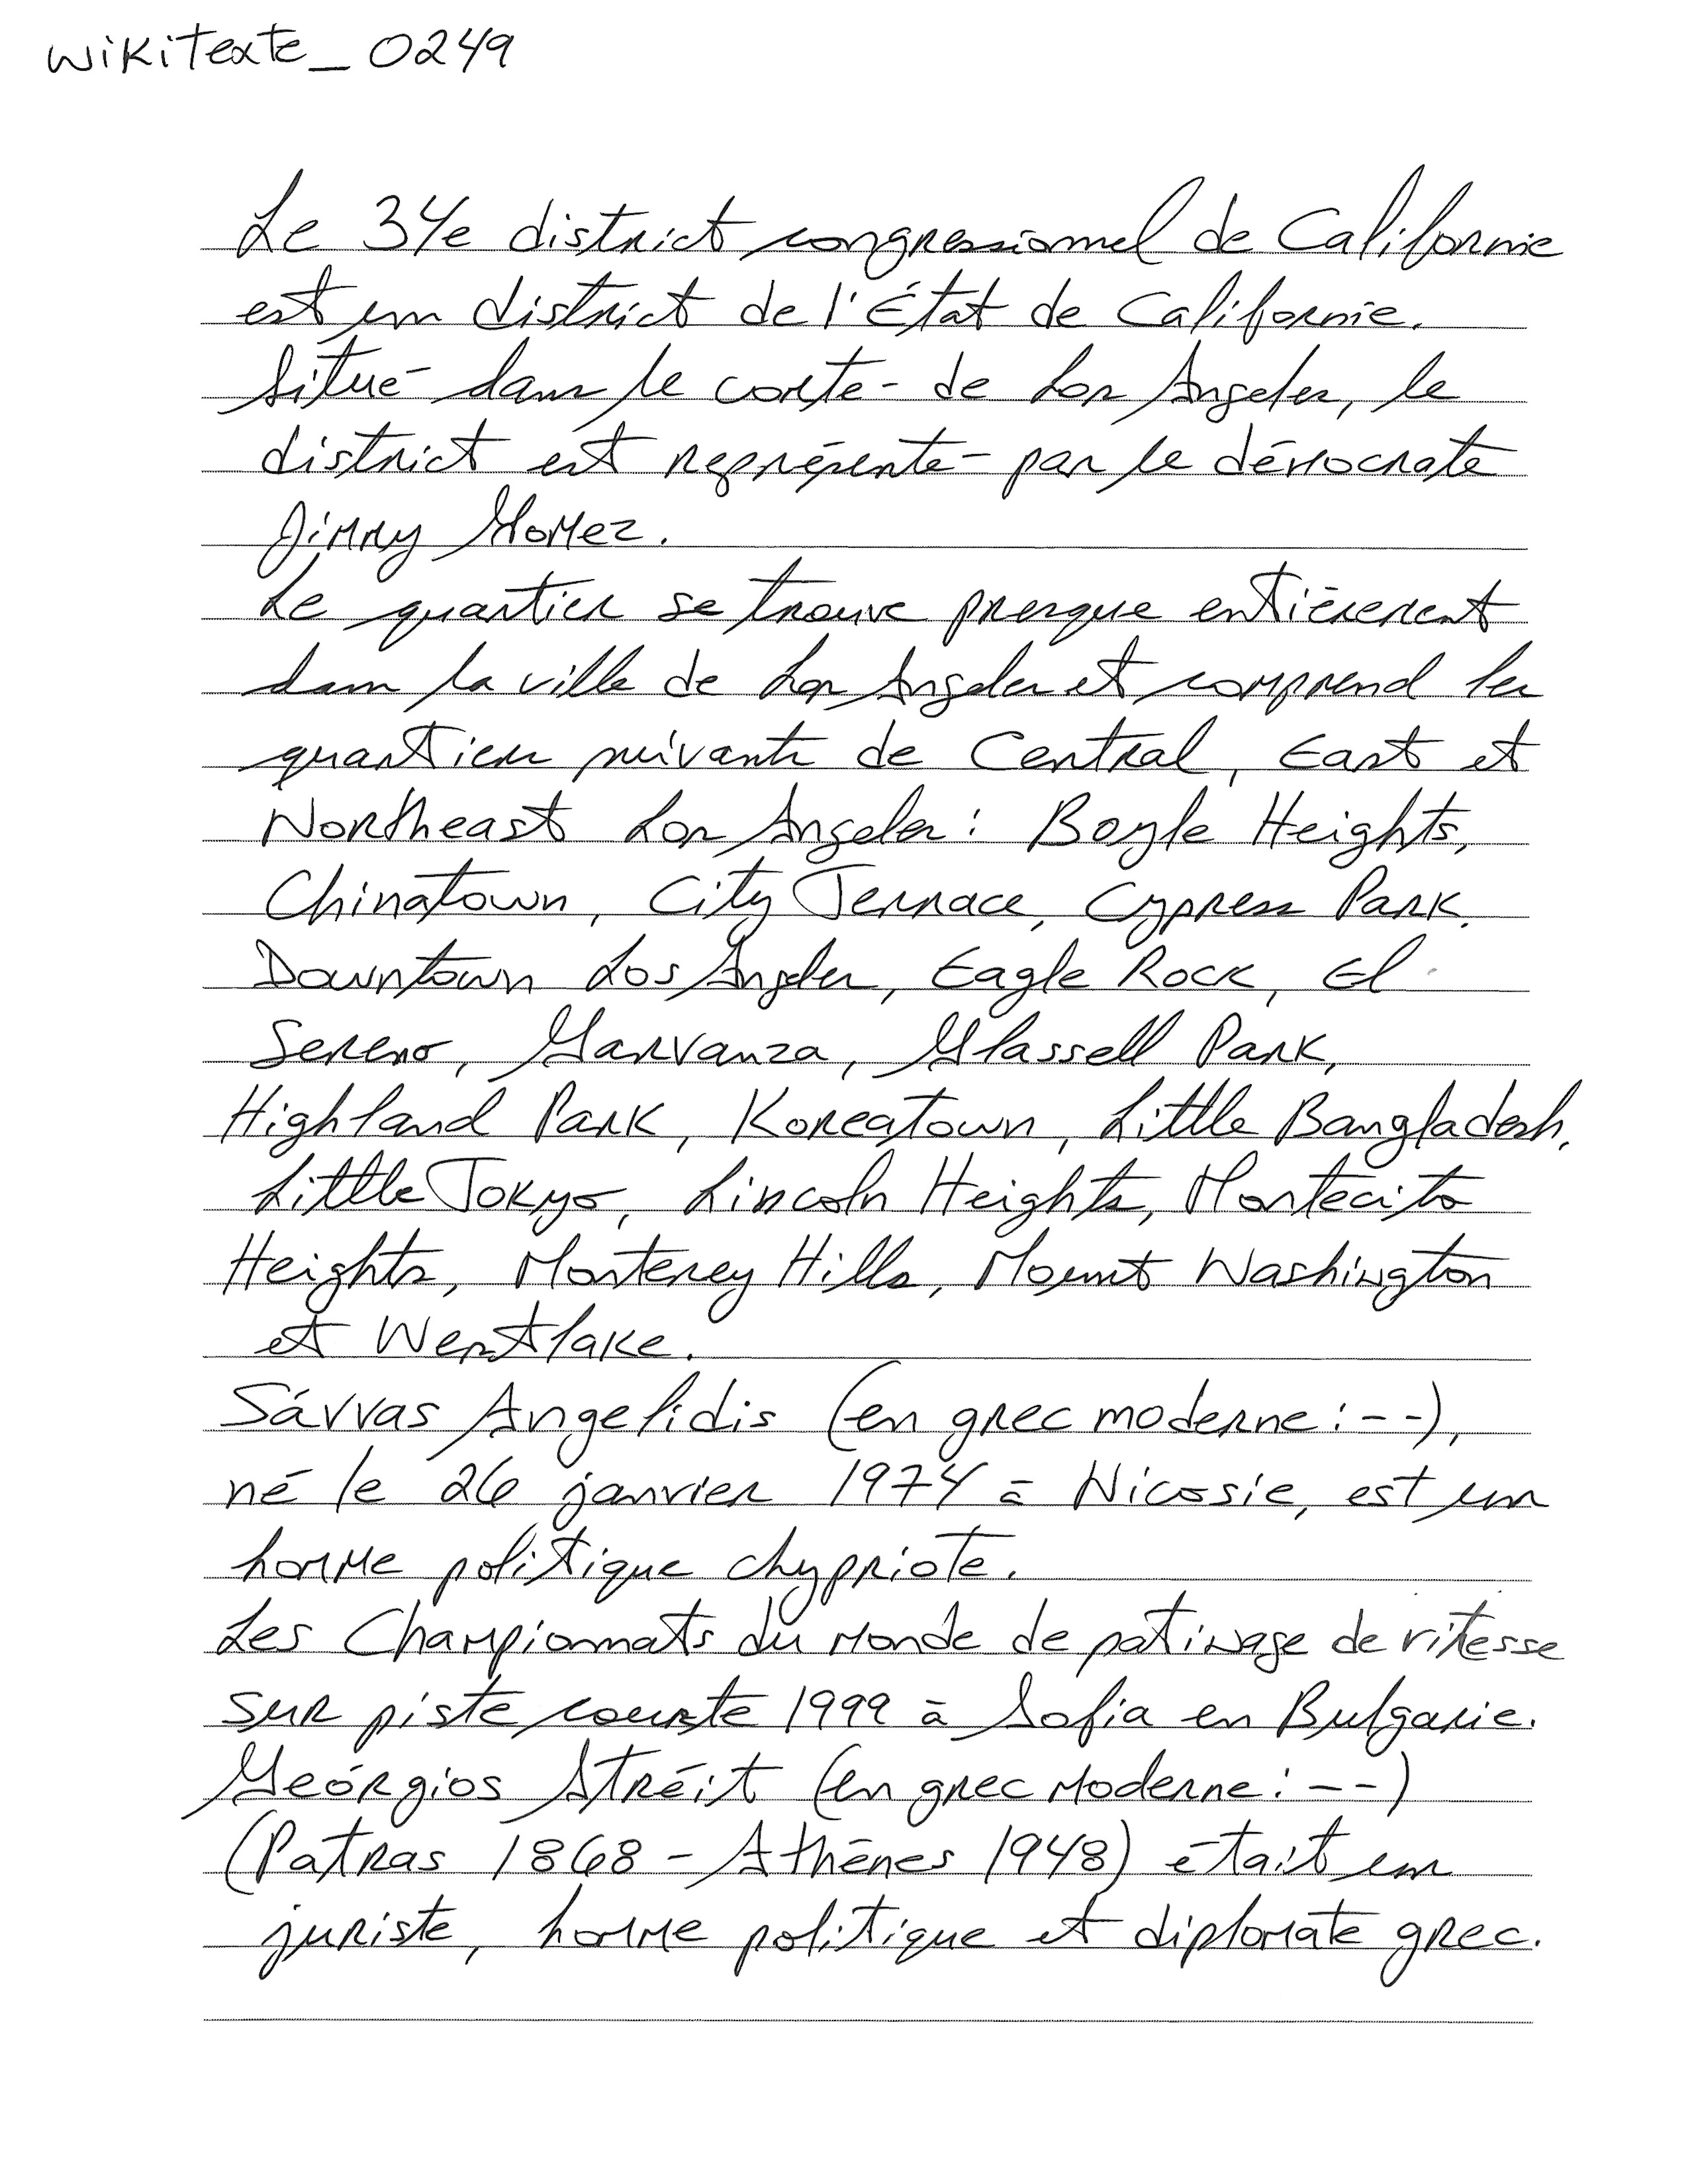 wikitexte_0249
Le 34e district congressionnel de Californie
est un district de l'État de Californie.
Situé dans le comté de Los Angeles, le
district est représenté par le démocrate
Jimmy Gomez.
Le quartier se trouve presque entièrement
dans la ville de Los Angeles et comprend les
quartiers suivants de Central, East et
Northeast Los Angeles : Boyle Heights,
Chinatown, City Terrace, Cypress Park,
Downtown Los Angeles, Eagle Rock, El
Sereno, Garvanza, Glassell Park,
Highland Park, Koreatown, Little Bangladesh,
Little Tokyo, Lincoln Heights, Montecito
Heights, Monterey Hills, Mount Washington
et Westlake.
Sávvas Angelídis (en grec moderne : --),
né le 26 janvier 1974 à Nicosie, est un
homme politique chypriote.
Les Championnats du monde de patinage de vitesse
sur piste courte 1999 à Sofia en Bulgarie.
Geórgios Stréit (en grec moderne : --)
(Patras 1868 - Athènes 1948) était un
juriste, homme politique et diplomate grec.